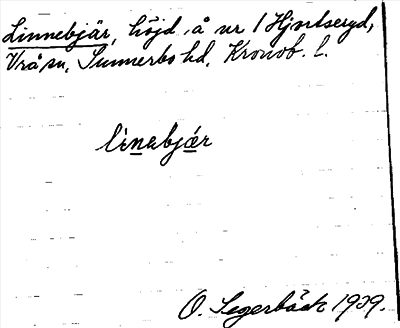 Linnebjär, höjd å nr 1 Hjortseryd,
Vrå sn, Sunnerbo hd, Kronob. l.
linabjær
O. Segerbäck 1929.